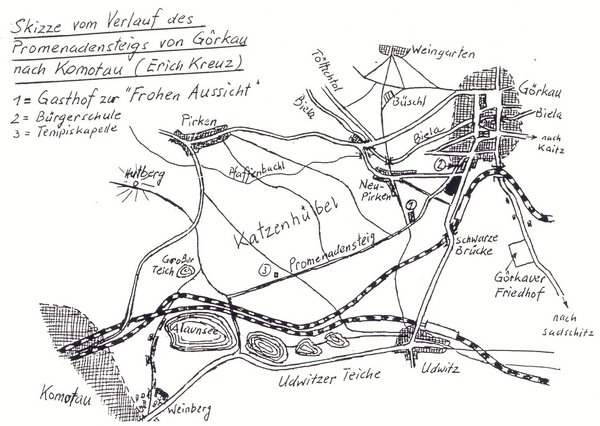 Skizze vom Verlauf des
Promenadensteigs von Görkau
nach Komotau (Erich Kreuz)
1 = Gasthof zur "Frohen Aussicht"
2 = Bürgerschule
3 = Tenipiskapelle
Weingarten
Töltschtal
Büschl
Görkau
Biela
Biela
Biela
nach
Kaitz
Pirken
Pfaffenbachl
2
Neu-
Pirken
1
Hutberg
Katzenhübel
Promenadensteig
Schwarze
Brücke
Görkauer
Friedhof
Großer
Teich
3
nach
Sadschitz
Alaunsee
Udwitzer Teiche
Udwitz
Komotau
Weinberg